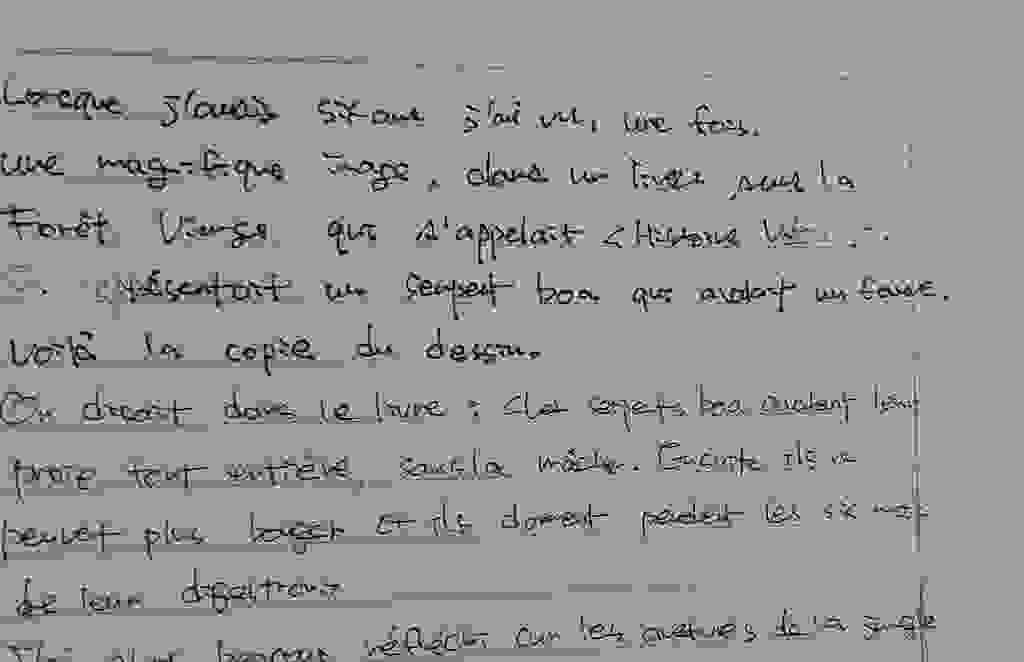 Lorsque j'avais six ans j'ai vu, une fois,
une magnifique image, dans un livre sur la
Forêt Vierge qui s'appelait < Histoires
représentait un serpent boa qui avalait un fauve.
Voilà la copie du dessin.
On disait dans le livre : < Les serpents boa avalent leur
proie tout entière, sans la mâcher. Ensuite ils ne
peuvent plus bouger et ils dorment pendant les six mois
de leur digestion >
J'ai alors beaucoup réfléchi sur les aventures de la jungle